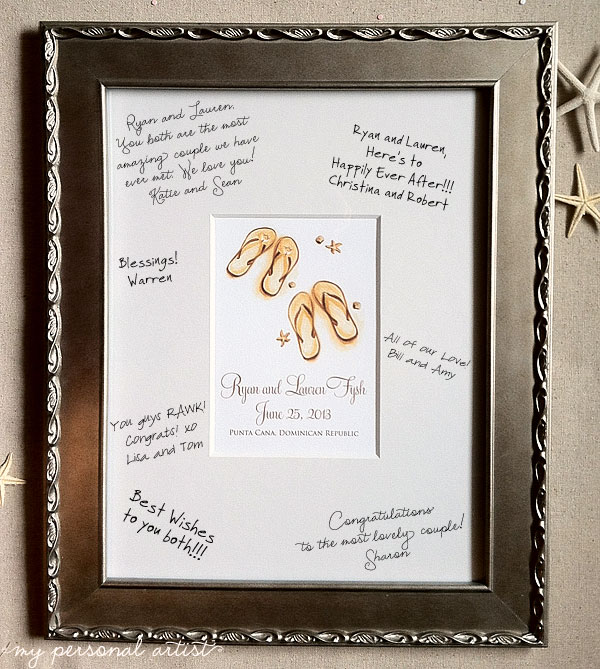 Ryan and Lauren.
You both are the most
amazing couple we have
ever met. We love you!
Katie and Sean
Ryan and Lauren,
Here's to
Happily Ever After!!!
Christina and Robert
Blessings!
Warren
All of our Love!
Bill and Amy
Ryan and Lauren Fysh
June 25, 2013
Punta Cana, Dominican Republic
You guys RAWK!
Congrats! xo
Lisa and Tom
Best Wishes
to you both!!!
Congratulations
to the most lovely couple!
Sharon
my personal artist